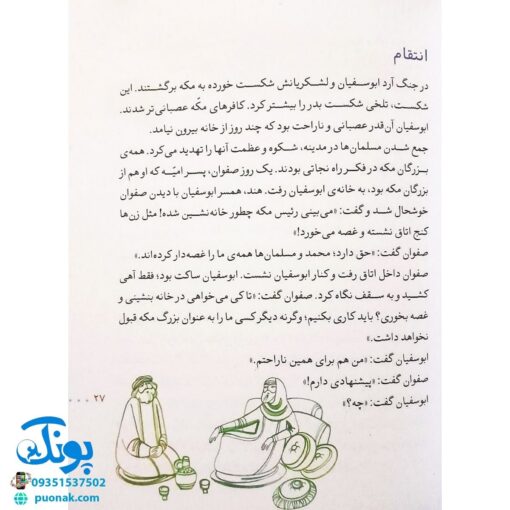 انتقام
در جنگ آرد ابوسفیان و لشکریانش شکست خورده به مکه برگشتند. این
شکست، تلخی شکست بدر را بیشتر کرد. کافرهای مکّه عصبانی‌تر شدند.
ابوسفیان آن‌قدر عصبانی و ناراحت بود که چند روز از خانه بیرون نیامد.
جمع شدن مسلمان‌ها در مدینه، شکوه و عظمت آنها را تهدید می‌کرد. همه‌ی
بزرگان مکه در فکر راه نجاتی بودند. یک روز صفوان، پسر امیّه که او هم از
بزرگان مکه بود، به خانه‌ی ابوسفیان رفت. هند، همسر ابوسفیان با دیدن صفوان
خوشحال شد و گفت: «می‌بینی رئیس مکه چطور خانه‌نشین شده! مثل زن‌ها
کنج اتاق نشسته و غصه می‌خورد!»
صفوان گفت: «حق دارد؛ محمد و مسلمان‌ها همه‌ی ما را غصه‌دار کرده‌اند.»
صفوان داخل اتاق رفت و کنار ابوسفیان نشست. ابوسفیان ساکت بود؛ فقط آهی
کشید و به سقف نگاه کرد. صفوان گفت: «تا کی می‌خواهی در خانه بنشینی و
غصه بخوری؟ باید کاری بکنیم؛ وگرنه دیگر کسی ما را به عنوان بزرگ مکه قبول
نخواهد داشت.»
ابوسفیان گفت: «من هم برای همین ناراحتم.»
صفوان گفت: «پیشنهادی دارم!»
ابوسفیان گفت: «چه؟»
۲۷
پونک
09351537502
puonak.com